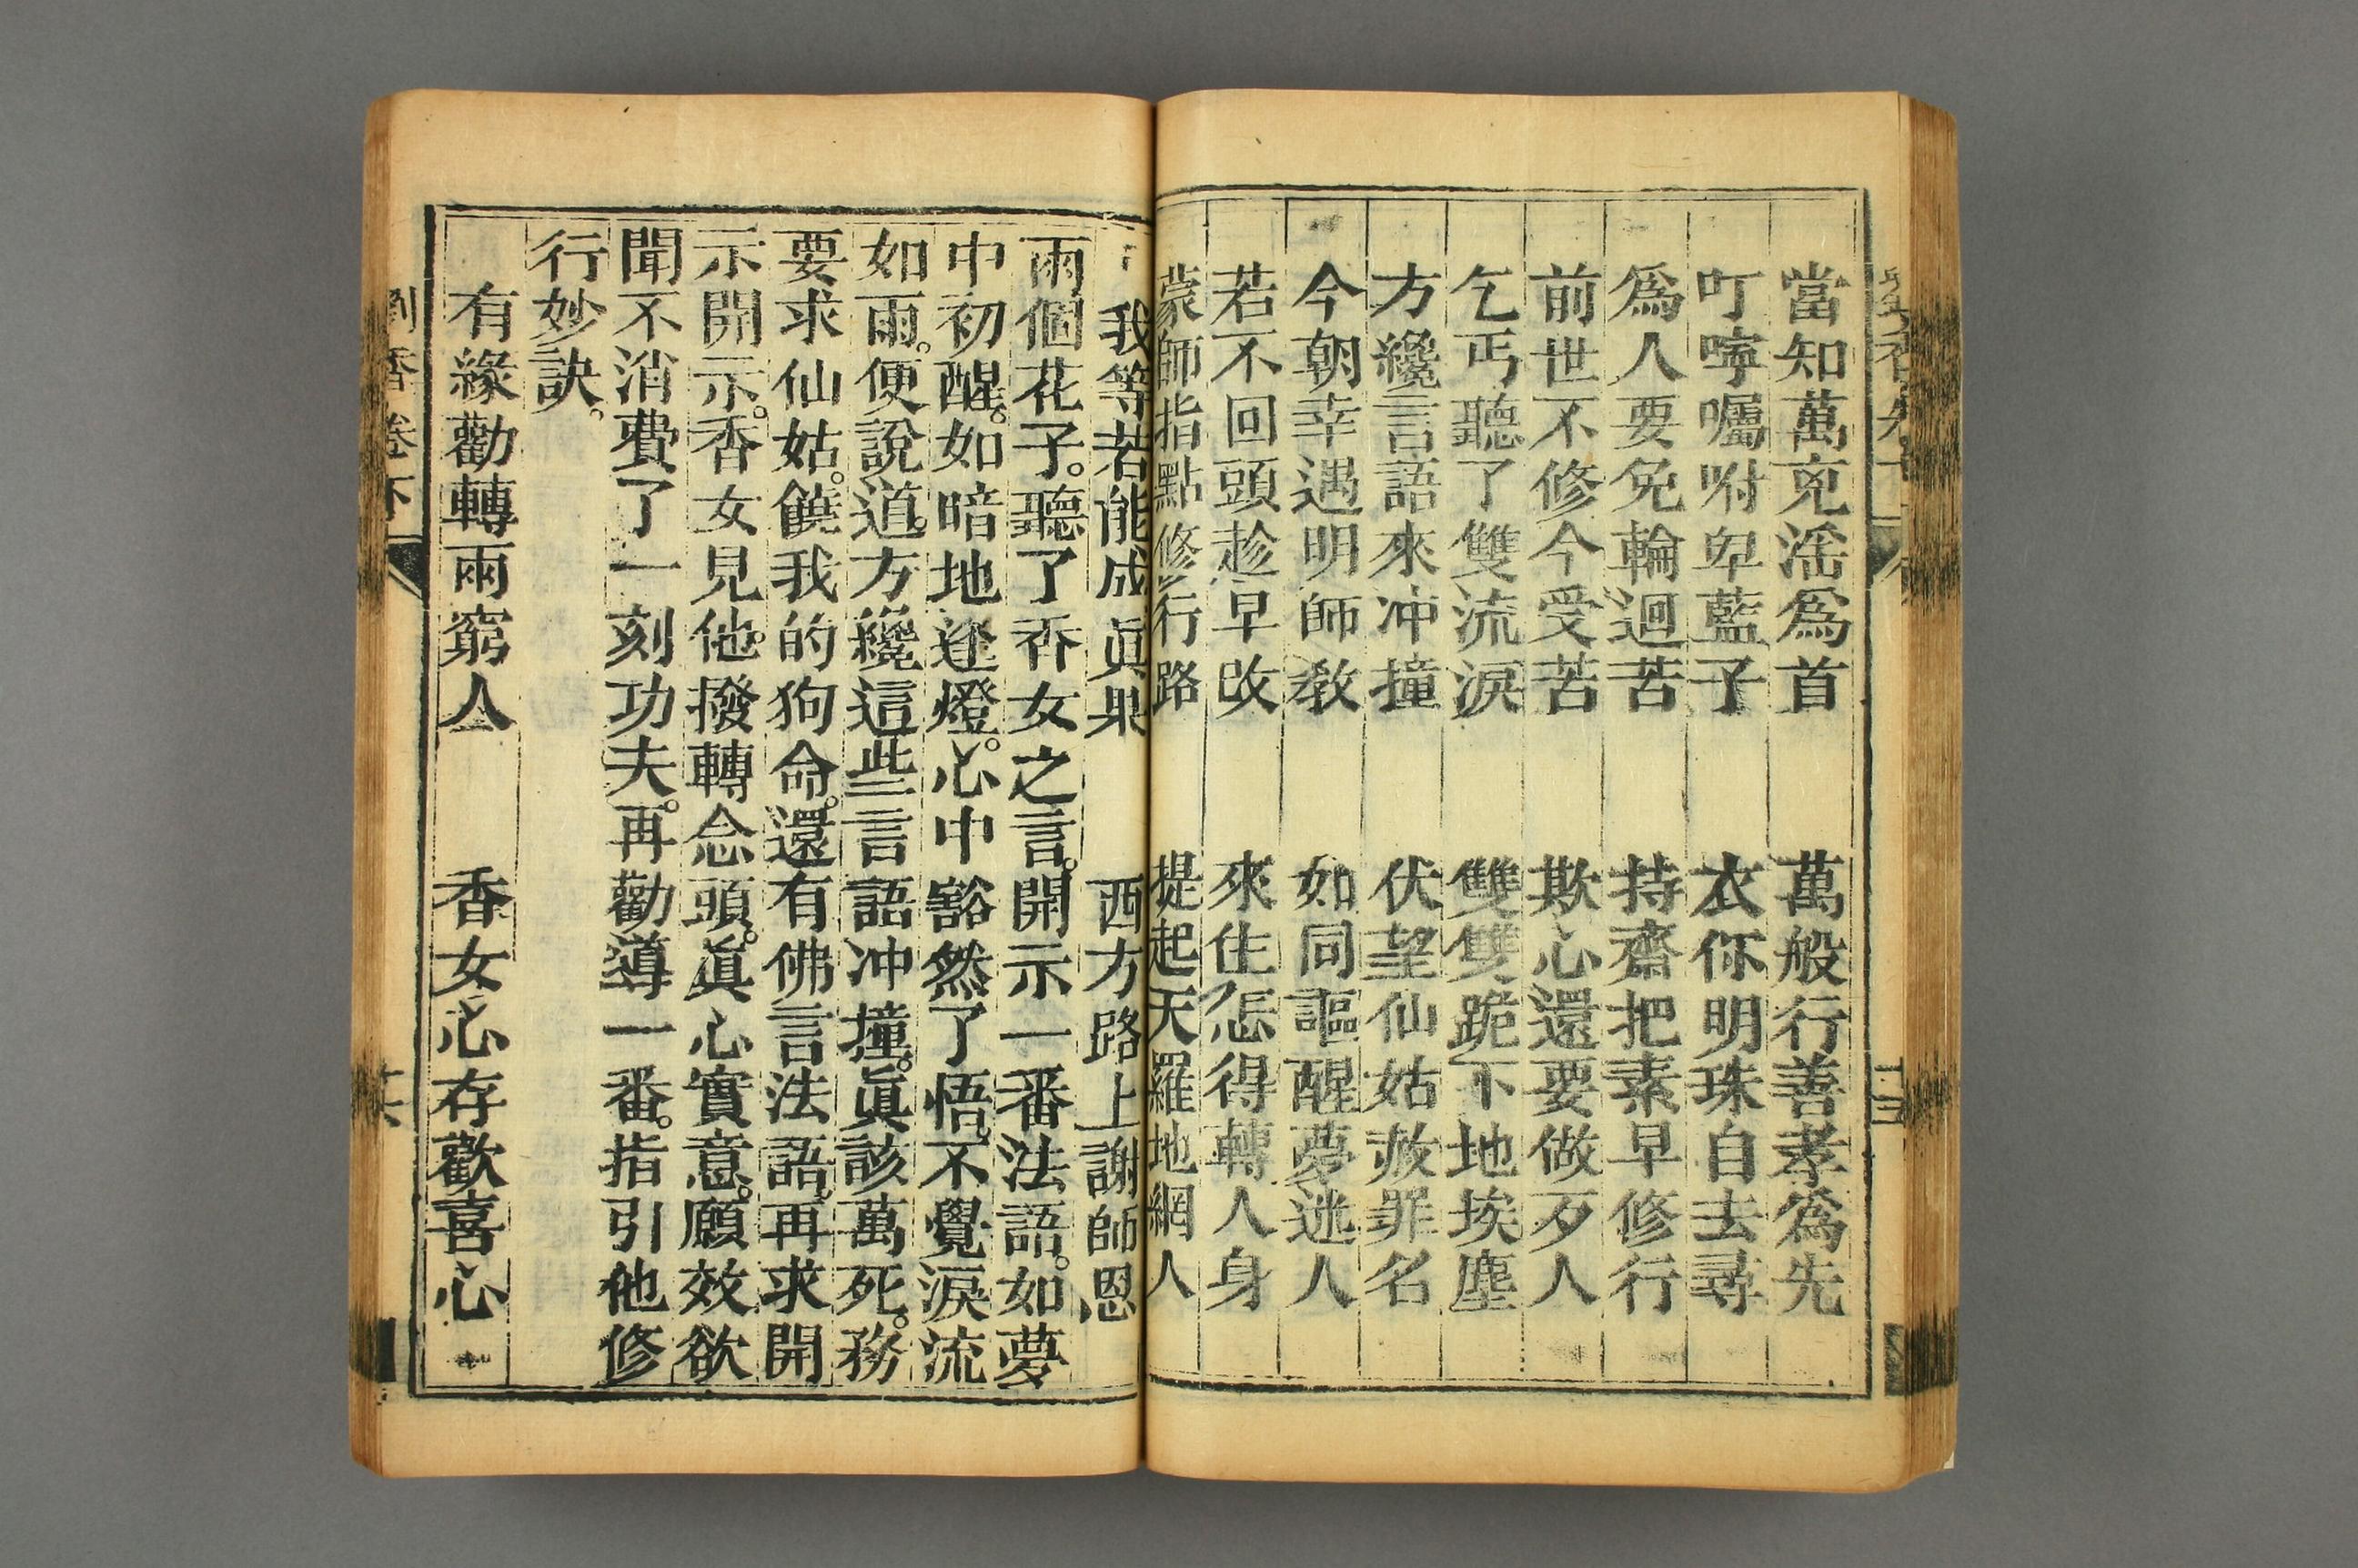 當知萬惡淫爲首　萬般行善孝爲先
叮嚀囑咐卑藍子　衣你明珠自去尋
爲人要免輪迴苦　持齋把素早修行
前世不修今受苦　欺心還要做歹人
乞丐聽了雙流淚　雙雙跪下地埃塵
方纔言語來冲撞　伏望仙姑赦罪名
今朝幸遇明師教　如同謳醒夢迷人
若不回頭趁早改　來生怎得轉人身
蒙師指點修行路　提起天羅地網人
我等若能成眞果　西方路上謝師恩
兩個花子。聽了香女之言。開示一番法語。如夢
中初醒。如暗地逢燈。心中豁然了悟。不覺淚流
如雨。便說道。方纔這些言語冲撞。眞該萬死。務
要求仙姑。饒我的狗命。還有佛言法語。再求開
示開示。香女見他。撥轉念頭。眞心實意。願效欲
聞不消費了一刻功夫。再勸導一番。指引他修
行妙訣。
有緣勸轉兩窮人　香女心存歡喜心
劉香卷下